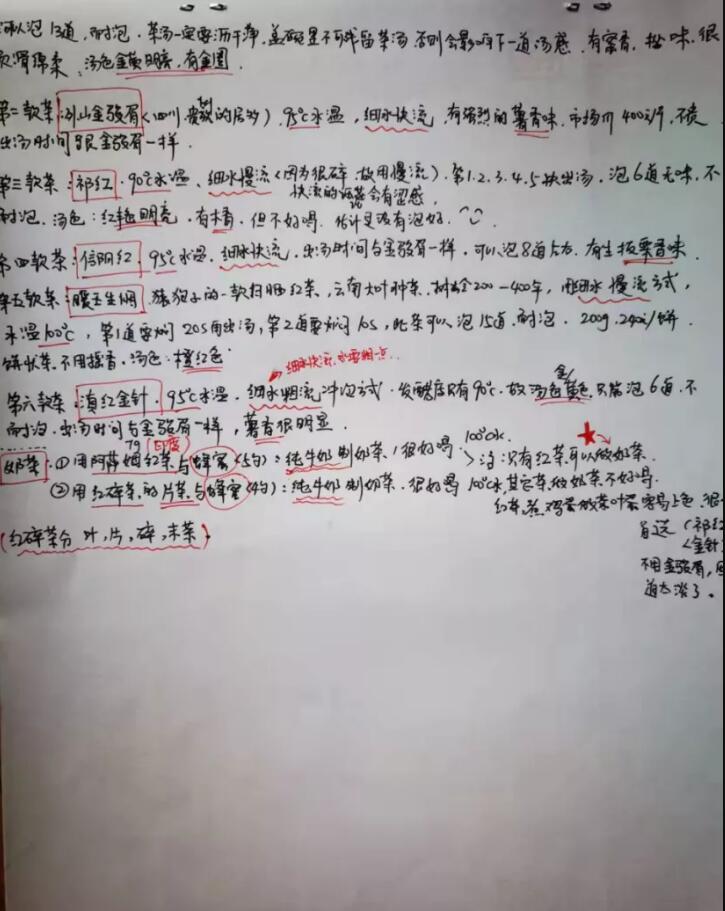 可以泡13道，耐泡。茶汤一定要沥干净，盖碗里不可残留茶汤，否则会影响下一道汤感，有蜜香，，很
顺滑绵柔，汤色金黄明亮，有金圈
第二款茶：外山金骏眉（四川、的居多），95℃水温，细水快流，有强烈的薯香味，市场价400元/斤，不贵
出汤时间跟金骏眉一样．
第三款茶：祁红．90℃水温、细水慢流（因为很碎，故用慢流）．第1.2.3.4.5快出汤．泡6道无味，不
快流的话会有涩感，
耐泡．汤色：红艳明亮，有木香．但不好喝．估计是没有泡好．
第四款茶：信阳红．95℃水温．细水快流．出汤时间与金骏眉一样．可以泡8道左右．有生板栗香味．
第五款茶：野生，的一款扫晒红茶，云南大叶种茶．树龄200—400年，用细水慢流方式，
水温100℃，第1道要焖20S再出汤，第2道要焖10S，此茶可以泡15道．耐泡．200g．240元/饼．
饼状茶．不用摇香．汤色：橙红色
细水快流，水要细一点..
第六款茶：滇红金针．95℃水温．细水细流冲泡方式．发酵度只有90%．故汤色金黄色．只能泡6道．不
耐泡．出汤时间与金骏眉一样，薯香很明显．
7g 印度 100℃ok．
奶茶．①用阿萨姆红茶与蜂蜜（5勺）：纯牛奶制奶茶，很好喝．>注：只有红茶可以做奶茶．
②用红碎茶的片茶与蜂蜜（4勺）：纯牛奶制奶茶．很好喝 100℃水，其它茶做奶茶不好喝．
红茶煮鸡蛋做茶叶蛋容易上色．很
（红碎茶分叶，片，碎，末茶）
首选（祁红
＜金针
不用金骏眉，
道太淡了．